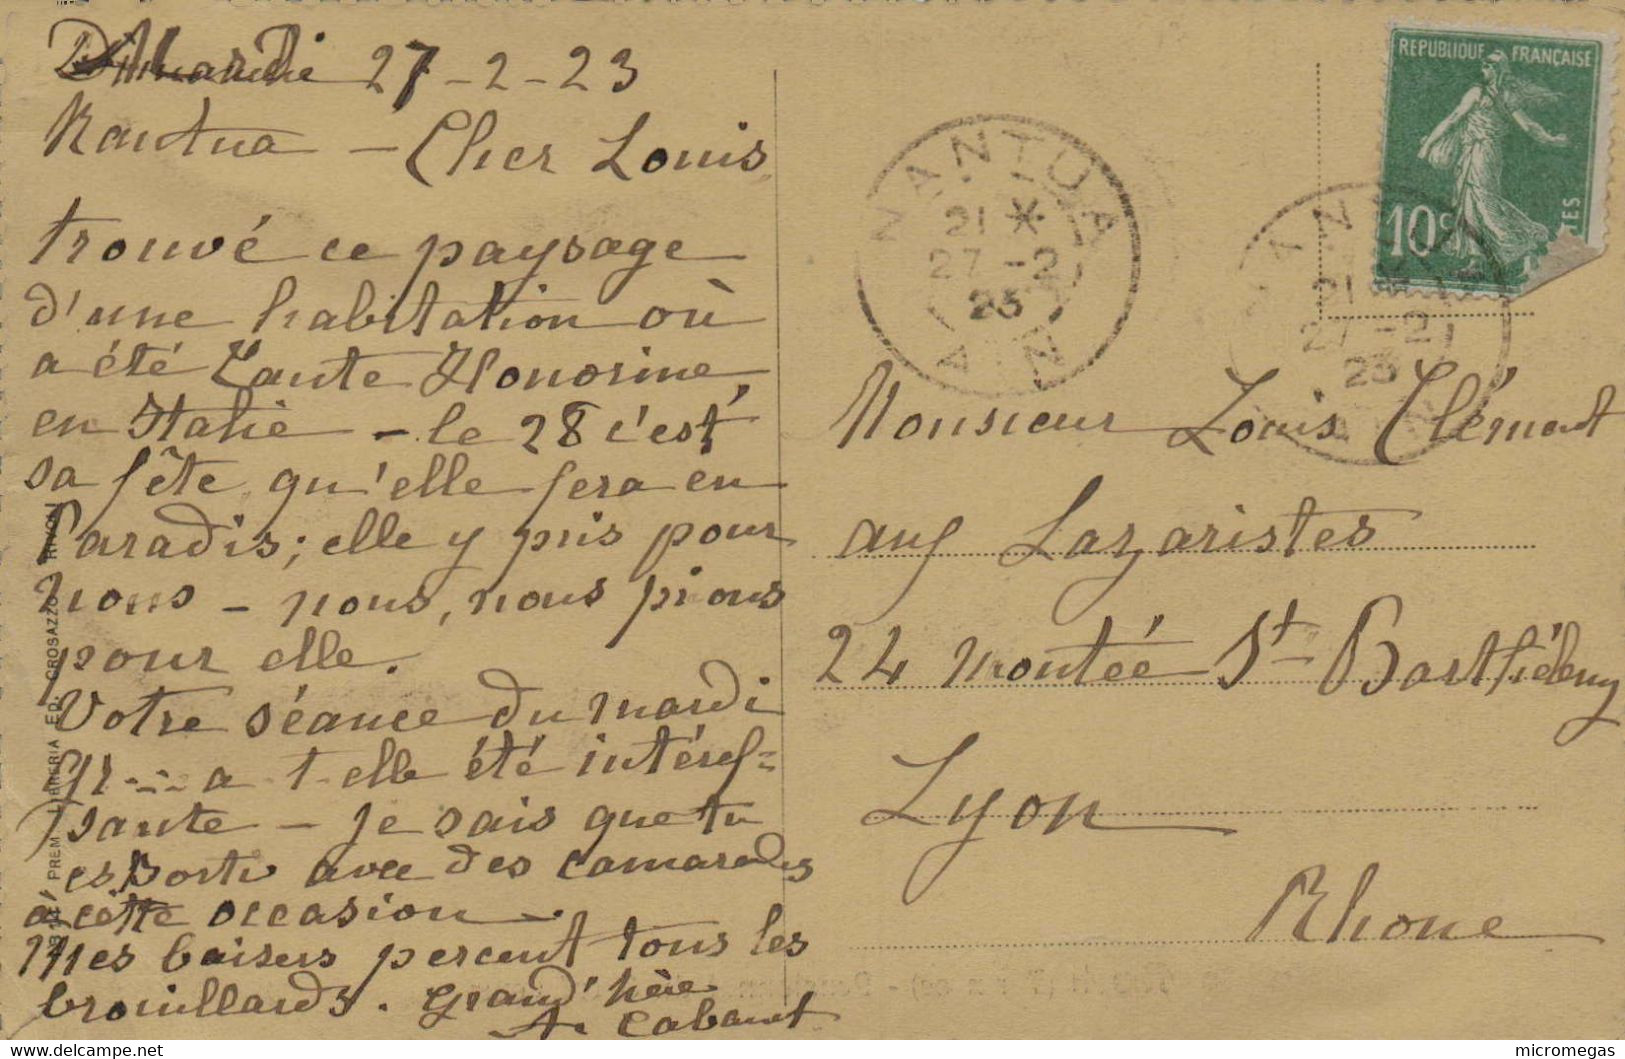 Mardi 27-2-23
Nantua - Cher Louis
trouvé ce paysage
d'une habitation où
a été Tante Honorine,
en Italie - le 28 c'est
sa fête qu'elle fera en
Paradis; elle y pris pour
nous - nous, nous prions
pour elle.
Votre séance du mardi
a t-elle été intéres=
sante - je sais que tu
es sorti avec des camarades
a cette occasion -.
Mes baisers percent tous les
brouillards. grand'hère
A. Cabanet
PREM. LIBRERIA ED. CROSAZZO - RIVOLI
REPUBLIQUE FRANÇAISE
10c
POSTES
NANTUA
21 *
27 -2
23
AIN
NANTUA
21 *
27 -2
23
AIN
Monsieur Louis Clément
aux Lazaristes
24 montée St Barthélemy
Lyon
Rhone
micromegas